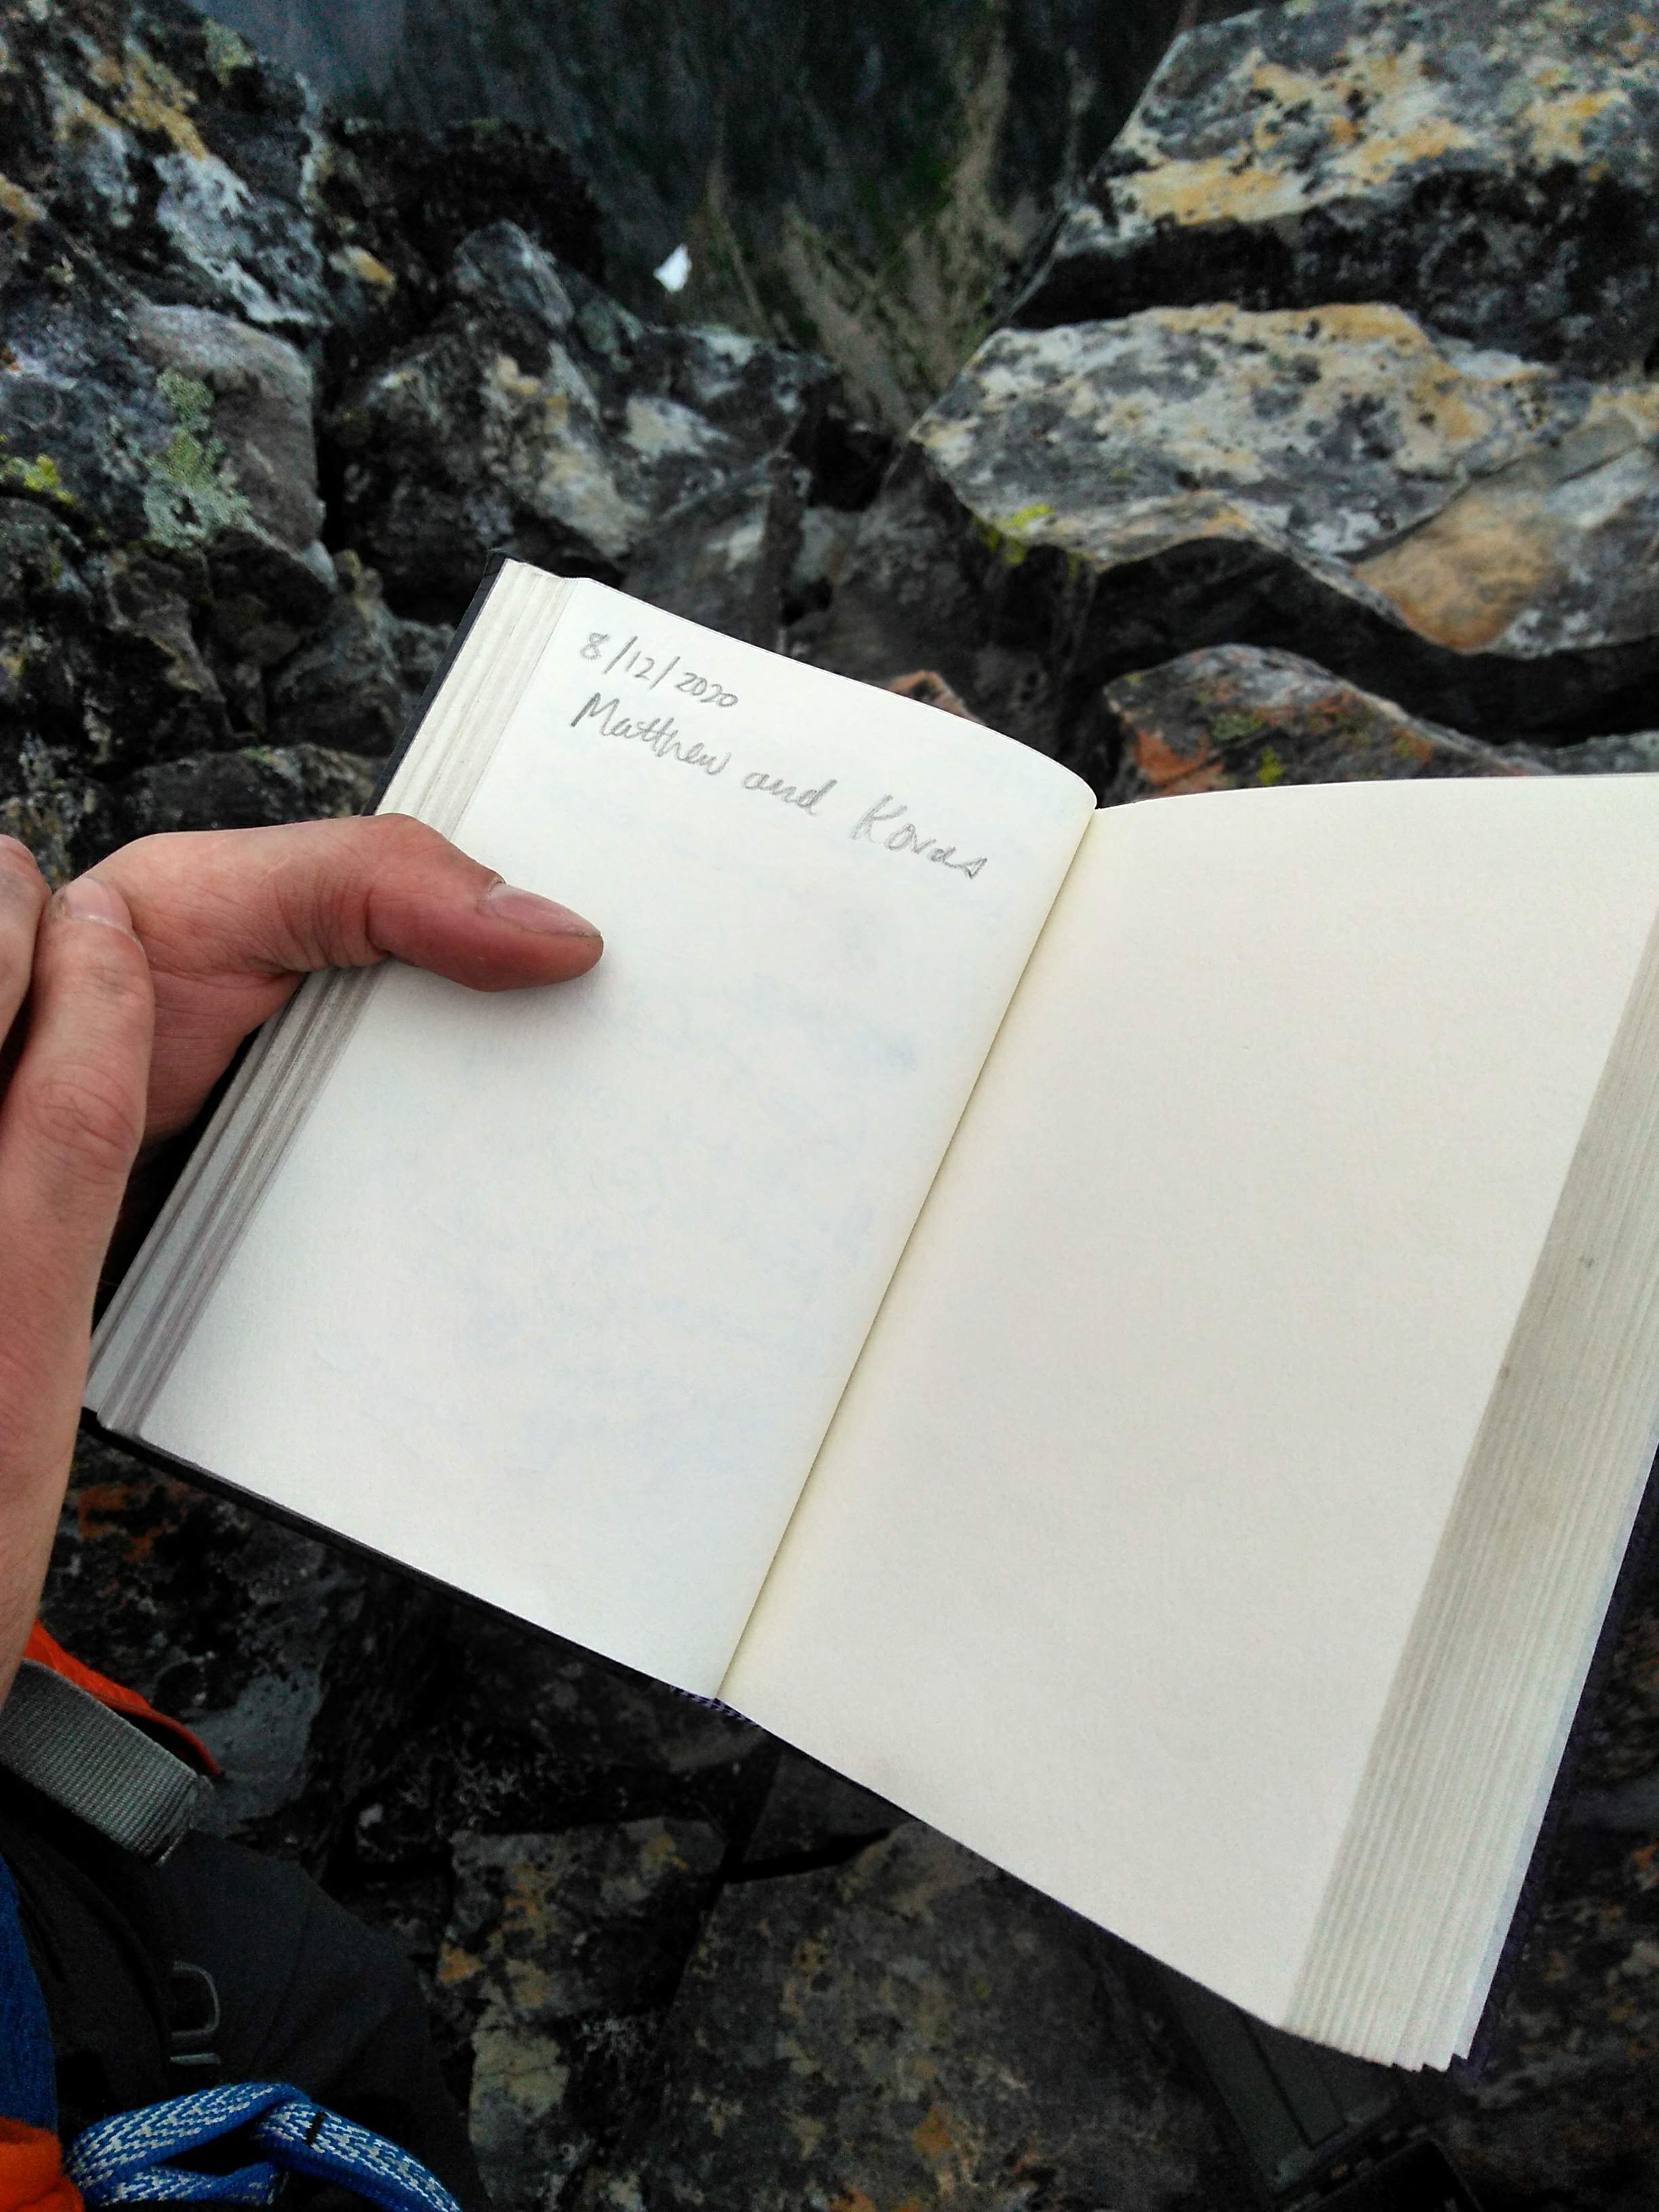 8/12/2020
Matthew and Kovas